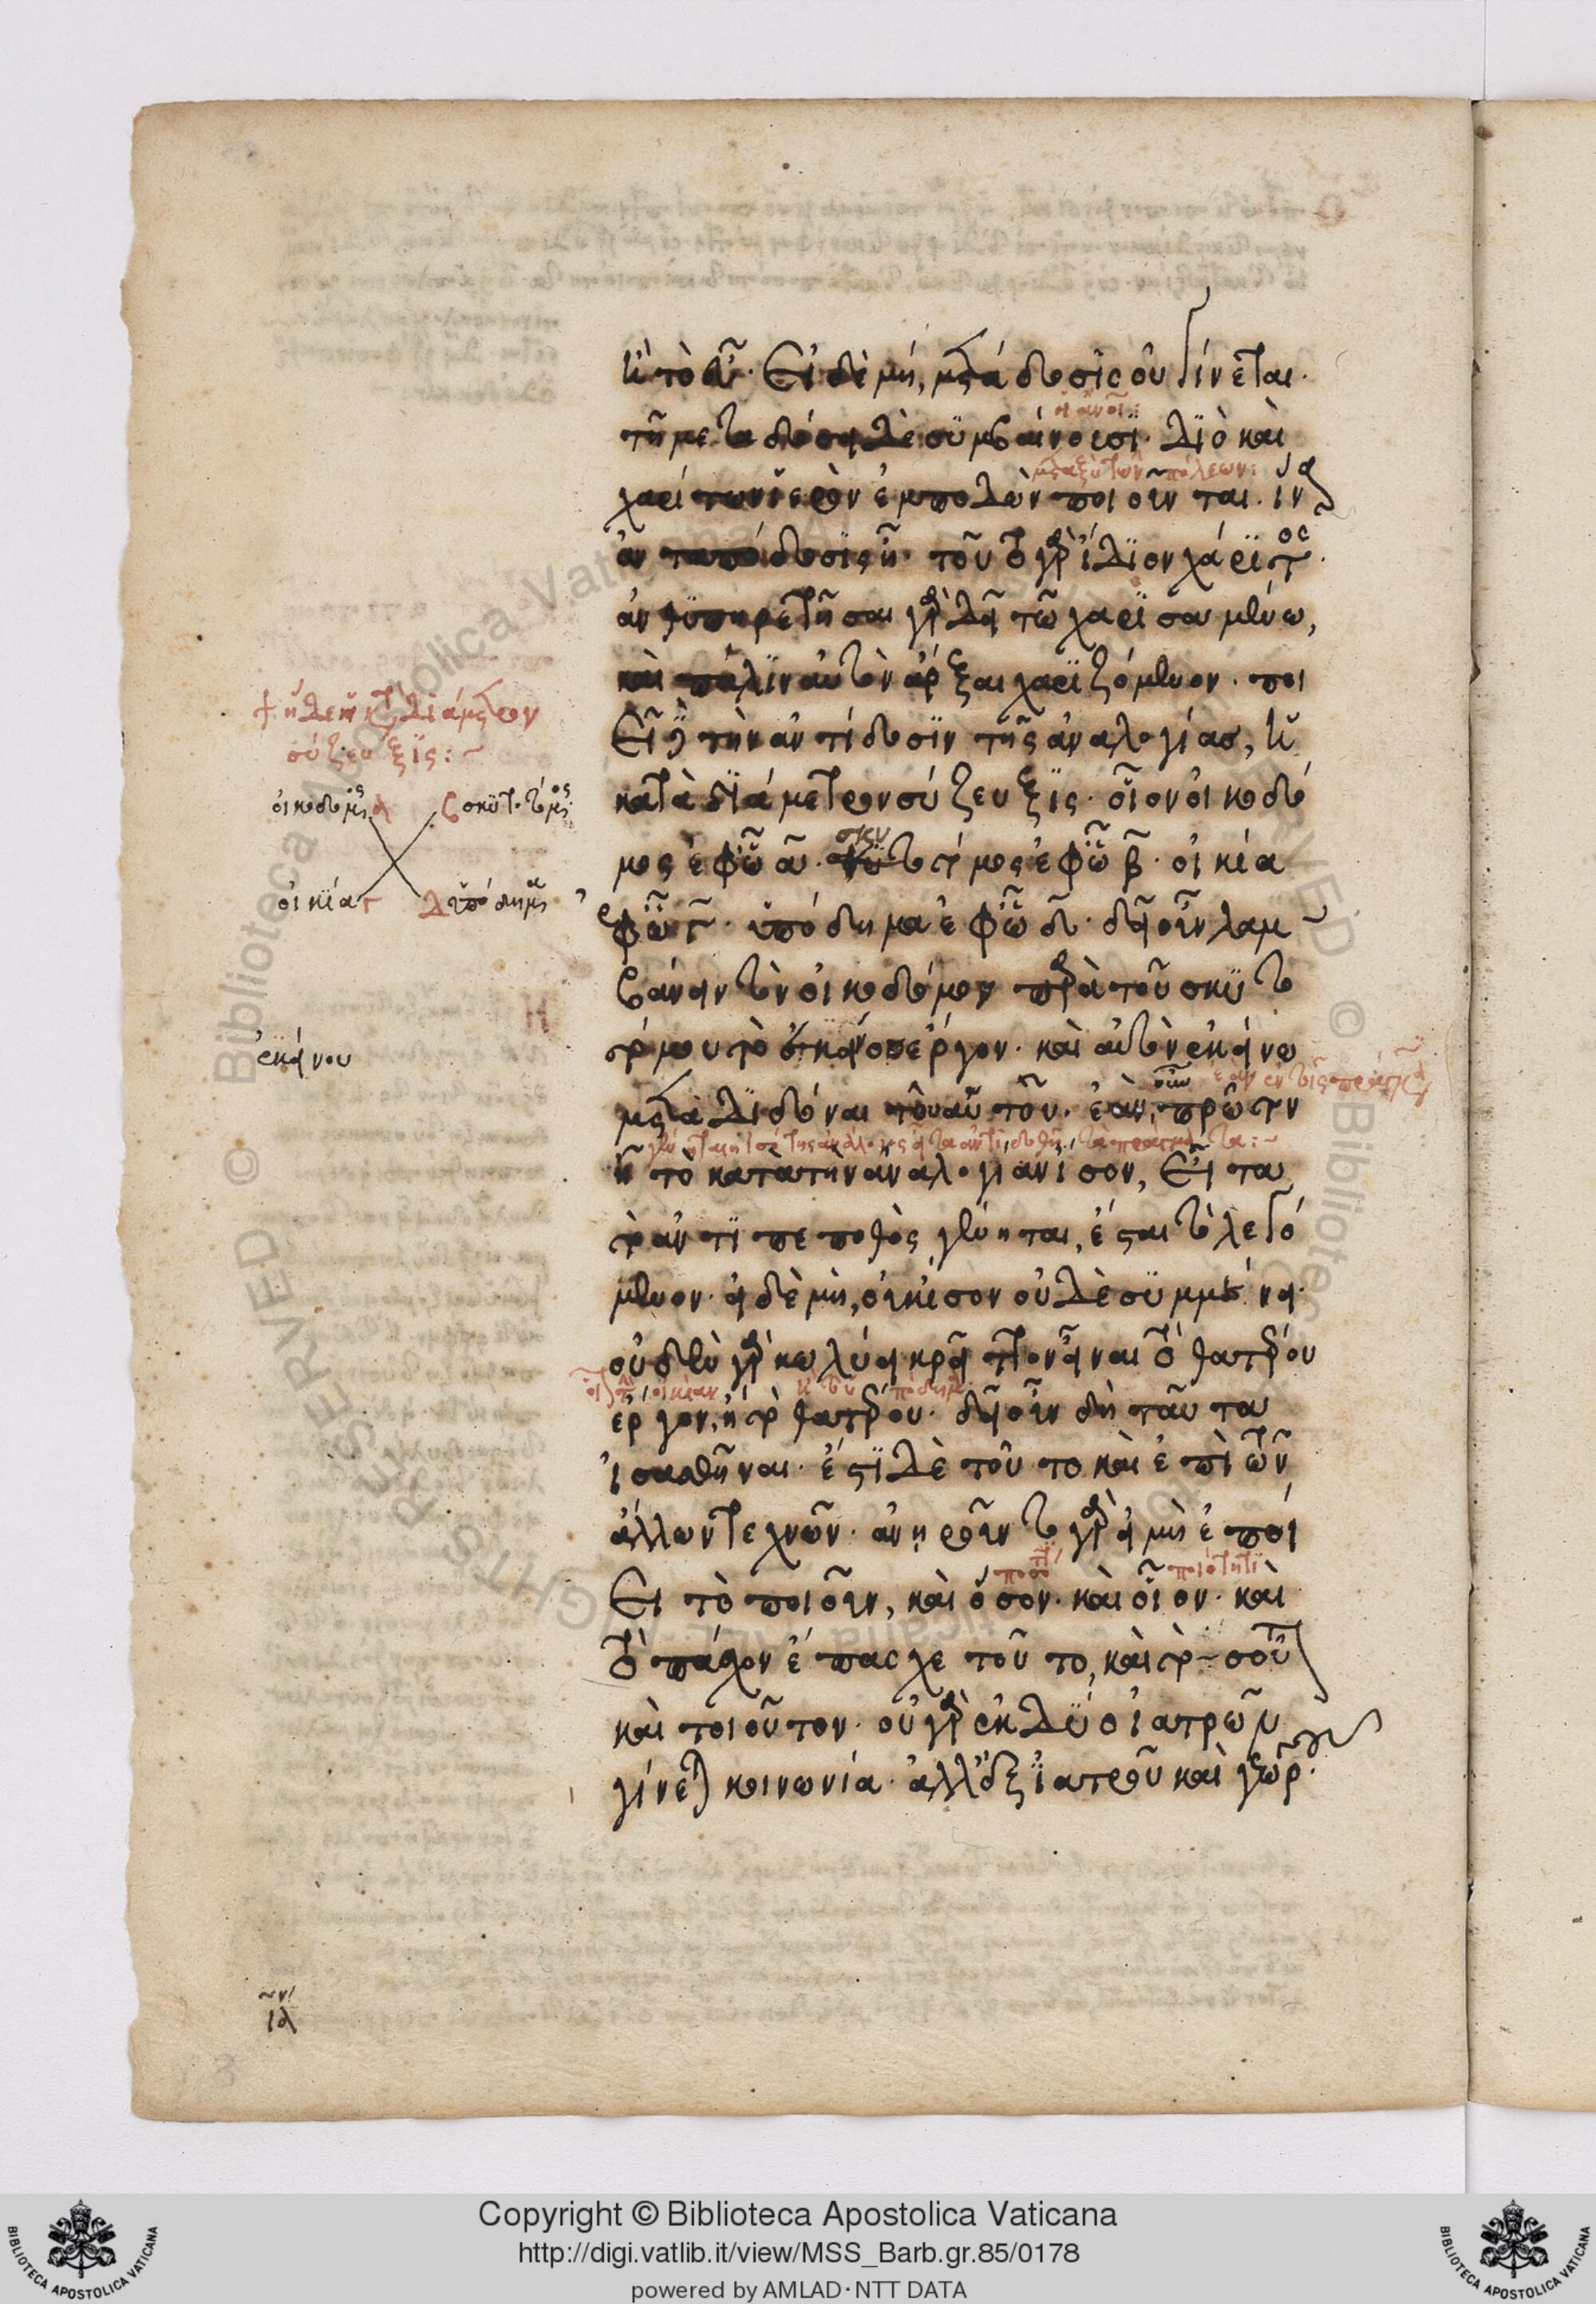 ἢ τὸ εὖ. Εἰ δὲ μή, μετάδοσις οὐ γίνεται.
οἱ ἄνοι:
τῆ μεταδόσει δὲ συμβαίνουσι. διὸ καὶ
μεταξὺ τῶν πόλεων:
χαρίτων ἱερὸν ἐμποδὼν ποιοῦνται. ἵν
ἀνταπόδοσις ἦ. τοῦτο γὰρ ἴδιον χάριτος.
ἀνθυπηρετῆσαι γὰρ δεῖ τῶ χαρισαμένω,
καὶ πάλιν αὐτὸν ἄρξαι χαριζόμενον. ποι
εῖ δὲ τὴν ἀντίδοσιν τῆς ἀναλογίας, ἡ
ἤδε ἡ κατὰ διάμετρον
σύζευξις:~
κατὰ διάμετρον σύζευξις. οἷον οἰκοδό
οἰκοδόμος α β σκυτοτόμος
σκυ
μος ἐφ ὧ α. τοτόμος ἐφ ὧ β. οἰκία
οἰκία γ δ ὑπόδημα
ἐφ ὧ γ. ὑπόδημα ἐφ ὧ δ. δεῖ οὖν λαμ
βάνειν τὸν οἰκοδόμον παρὰ τοῦ σκυτο
τόμου τὸ ἐκείνου ἔργον. καὶ αὐτὸν ἐκείνω
ἐκείνου
μεταδιδόναι τοῦ αὐτοῦ. ἐὰν οὖν πρῶτον
ἦ τὸ κατὰ τὴν ἀναλογίαν ἴσον, εἶτα
τὸ ἀντιπεπονθὸς γένηται, ἔσται τὸ λεγό
μενον. εἰ δὲ μὴ, οὐκ ἴσον οὐδὲ συμμένει.
οὐδὲν γὰρ κωλύει κρεῖττον εἶναι τὸ θατέρου
οἰκίαν
ἔργον, ἢ τὸ θατέρου. δεῖ οὖν δὴ ταῦτα
ἰσασθῆναι. ἔστι δὲ τοῦτο καὶ ἐπὶ τῶν
ἄλλων τεχνῶν. ἀνηροῦντο γὰρ εἰ μὴ ἐποί
ποσότητι ποιότητι
ει τὸ ποιοῦν, καὶ ὅσον. καὶ οἷον. καὶ
τὸ πάσχον ἔπασχε τοῦτο, καὶ τοσοῦτον
καὶ τοιοῦτον. οὐ γὰρ ἐκ δύο ἰατρῶν
γίνεται κοινωνία. ἀλλ ἐξ ἰατροῦ καὶ γεωργοῦ
Copyright © Biblioteca Apostolica Vaticana
http://digi.vatlib.it/view/MSS_Barb.gr.85/0178
powered by AMLAD·NTT DATA